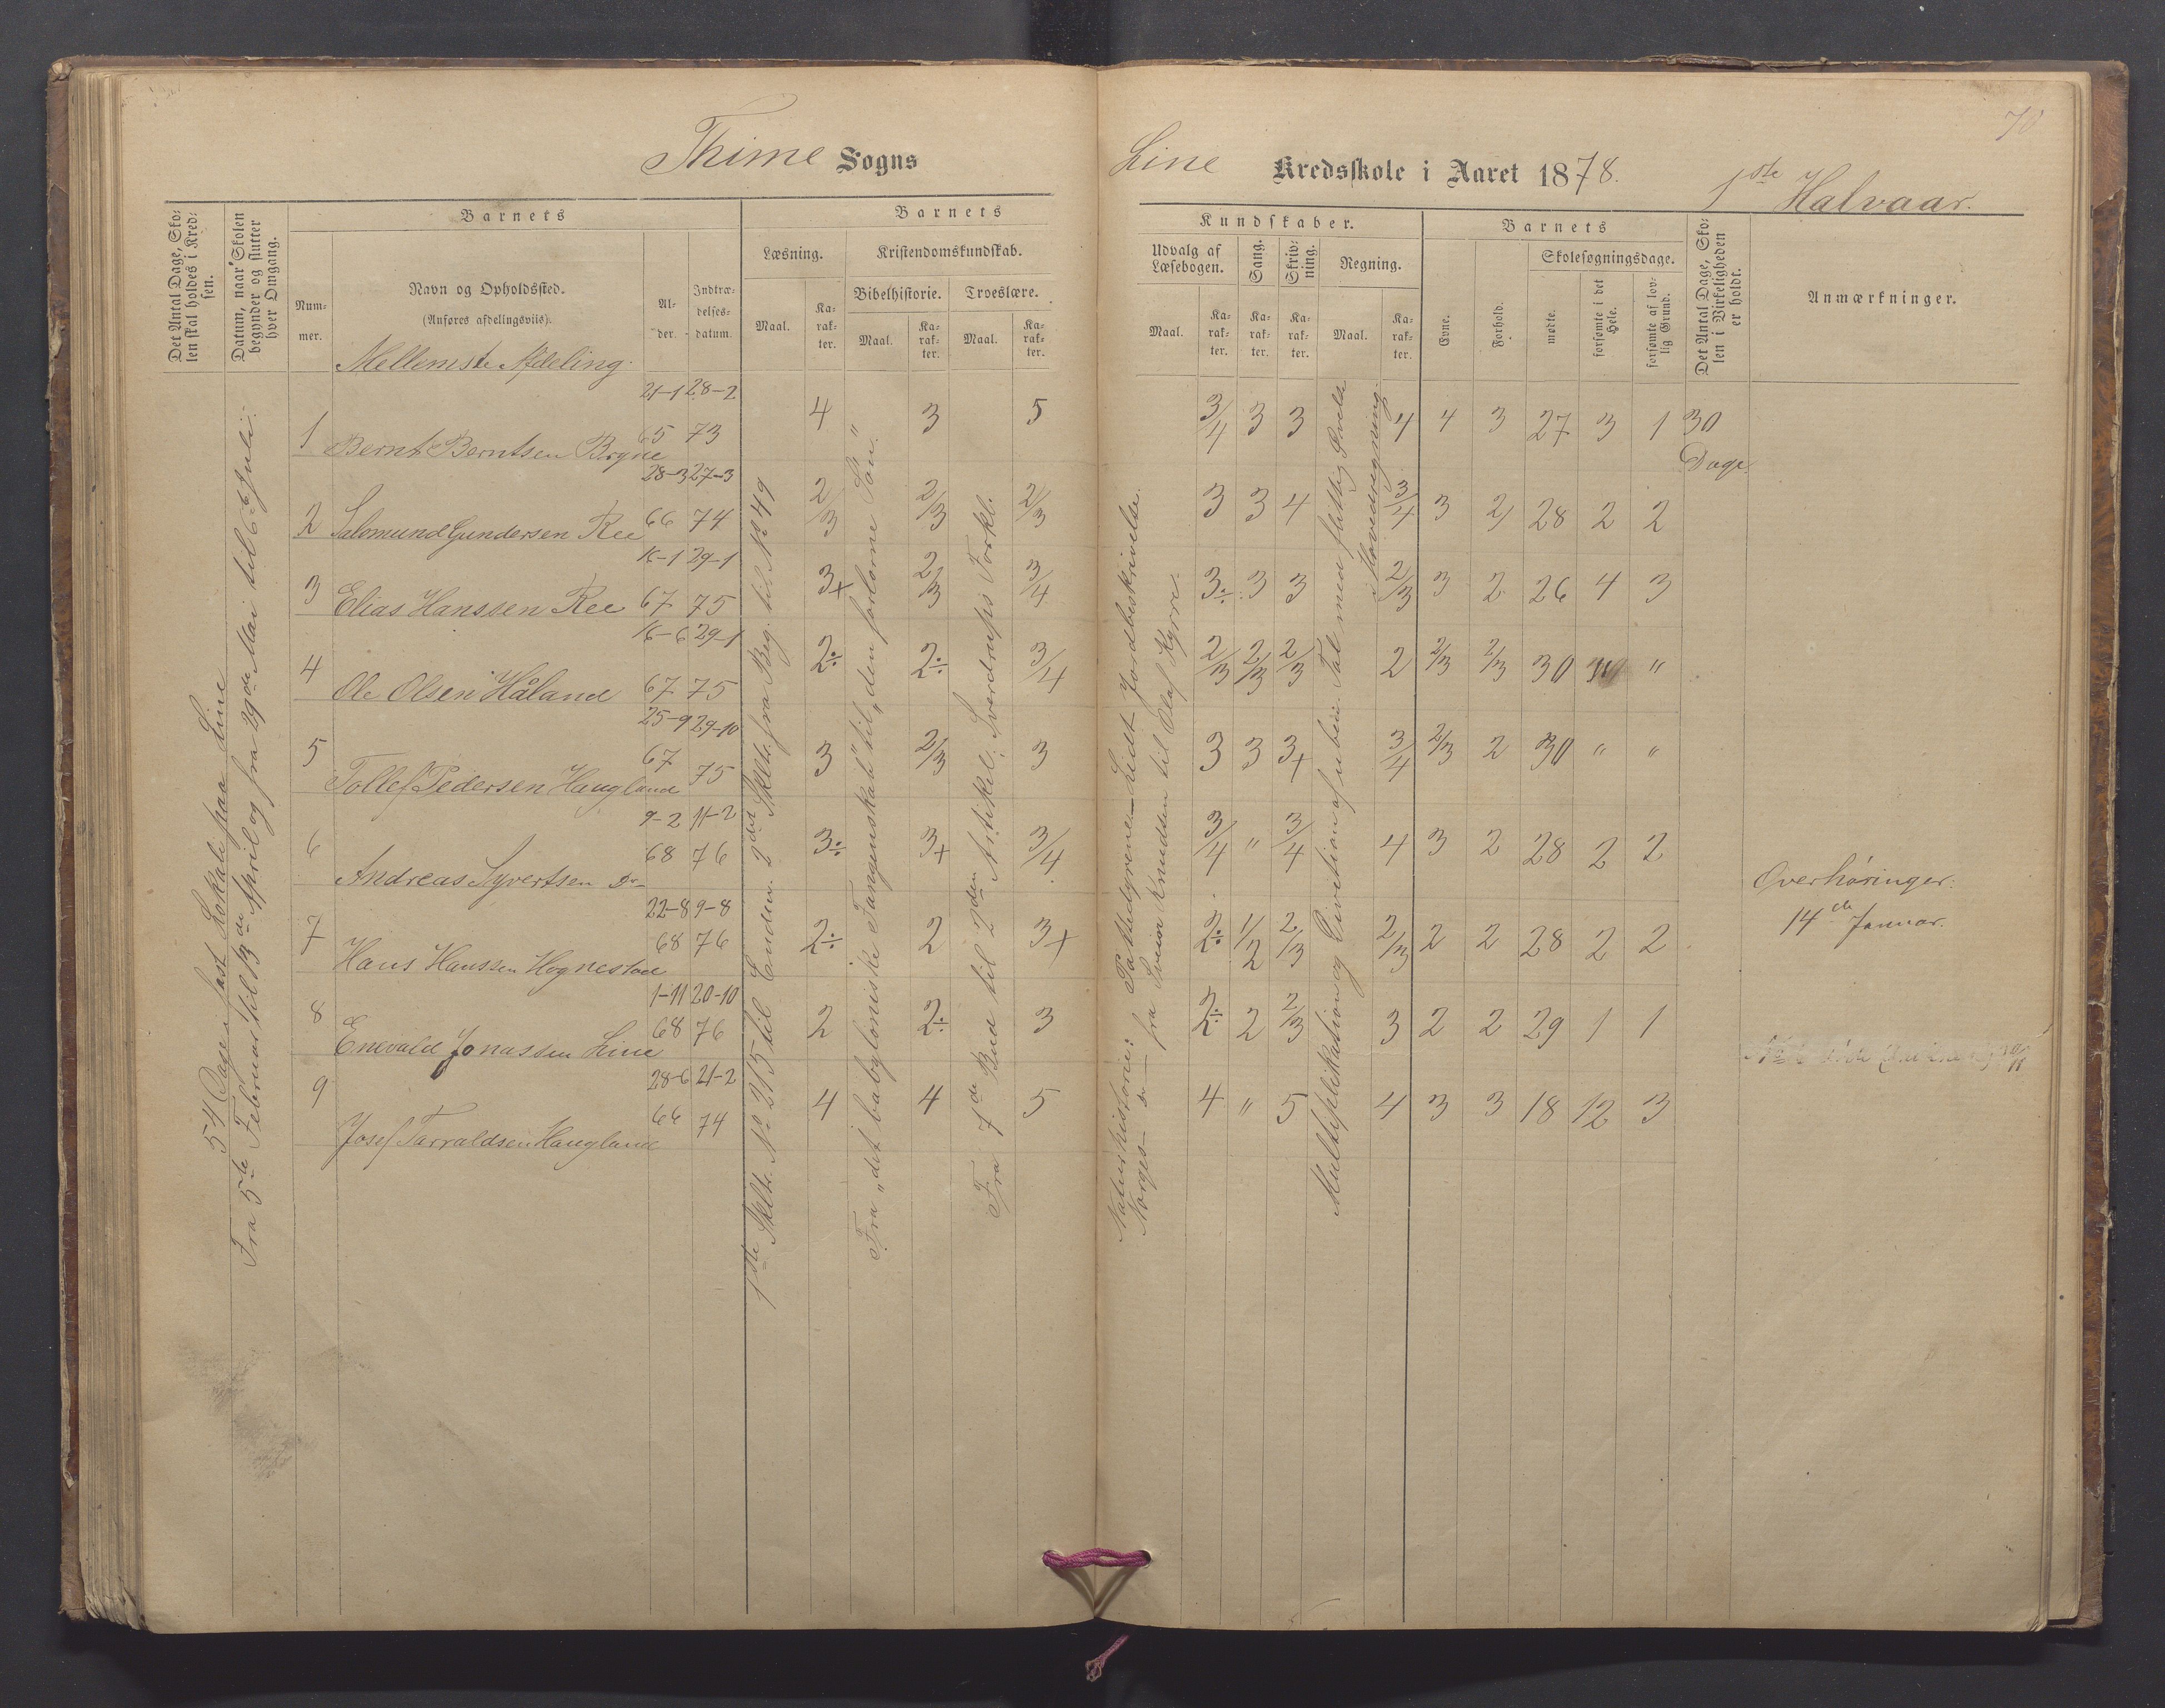 70
Thime Sogns
Line Kredsskole i Aaret 1878. 1ste Halvaar.
Det Antal Dage, Skolen skal holdes i Kredsen.
Datum, naar Skolen begynder og slutter hver Omgang.
Barnets
Nummer.
Navn og Opholdssted.
(Anføres afdelingsviis).
Alder.
Indtrædelsesdatum.
Barnets
Læsning.
Maal.
Karakter.
Kristendomskundskab.
Bibelhistorie.
Maal.
Karakter.
Troeslære.
Maal.
Karakter.
Kundskaber.
Udvalg af Læsebogen.
Maal.
Karakter.
Sang.
Karakter.
Skrivning.
Karakter.
Regning.
Maal.
Karakter.
Barnets
Evne.
Forhold.
Skolesøgningsdage.
mødte.
forsømte i det Hele.
forsømte af lovlig Grund.
Det Antal Dage, Skolen i Virkeligheden er holdt.
Anmærkninger.
Mellemste Afdeling.
54 Dage i fast Lokale paa Line
Fra 5te Februar til 13de April og fra 29de Mai til 6te Juli.
1ste Sklth. No 215 til Enden. 2det Sklth. fra Beg. til No 49
Fra "det babyloniske Fangenskab" til "den forlorne Søn"
Fra 7de Bud til 2den Artikel. Sverdrups Forkl.
Naturhistorie: Pattedyrene – Lidt Jordbeskrivelse.
Norges – do – fra Sveior Knudsen til Olaf Kyrre.
Multiplikation og Division af ubæn. Tal med flittig Øvelse
i Hovedregning.
1 Bernt Berntsen Bryne 21-1 65 28-2 73 4 3 5 3/4 3 3 4 4 3 27 3 1 30 Dage
2 Salomund Gundersen Ree 28-3 66 27-3 74 2/3 2/3 2/3 3 3 4 3/4 3 2 28 2 2
3 Elias Hanssen Ree 16-1 67 29-1 75 3+ 2/3 3/4 3÷ 3 3 2/3 3 2 26 4 3
4 Ole Olsen Håland 16-6 67 29-1 75 2÷ 2÷ 3/4 2/3 2/3 2/3 2 2/3 2/3 30 "
5 Tollef Pedersen Haugland 25-9 67 29-10 75 3 2/3 3 3 3 3+ 3/4 2/3 2 30 " "
6 Andreas Syvertsen Do 9-2 68 11-2 76 3÷ 3+ 3/4 3/4 " 3/4 4 3 2 28 2 2
7 Hans Hanssen Hognestad 22-8 68 9-8 76 2÷ 2 3+ 2÷ 1/2 2/3 2/3 2 2 28 2 2
8 Enevald Jonassen Line 1-11 68 20-10 76 2 2÷ 3 2÷ 2 2/3 3 2 2 29 1 1
9 Josef Tarraldsen Haugland 28-6 66 21-2 74 4 4 5 4 " 5 4 3 3 18 12 3
Overhøringer:
14de Januar.